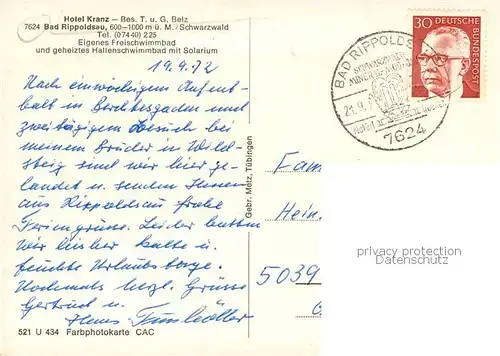 Hotel Kranz – Bes. T. u. G. Belz
7624 Bad Rippoldsau, 600–1000 m ü. M. / Schwarzwald
Tel. (07440) 225
Eigenes Freischwimmbad
und geheiztes Hallenschwimmbad mit Solarium
19.9.72
Nach einwöchigem Aufent-
halt in Berchtesgaden und
zweitägigem Besuch bei
meinem Bruder in Wild-
steig sind wir hier ge-
landet u. senden Ihnen
aus Rippoldsau frohe
Feriengrüsse. Leider hatten
wir bisher kalte u.
feuchte Urlaubstage.
Nochmals herzl. Grüsse
Gertrud u.
Hans
521 U 434 Farbphotokarte CAC
Gebr. Metz, Tübingen
BAD RIPPOLDS
21.9.
7624
30 DEUTSCHE
BUNDESPOST
Fam
Hein
5039
privacy protection
datenschutz